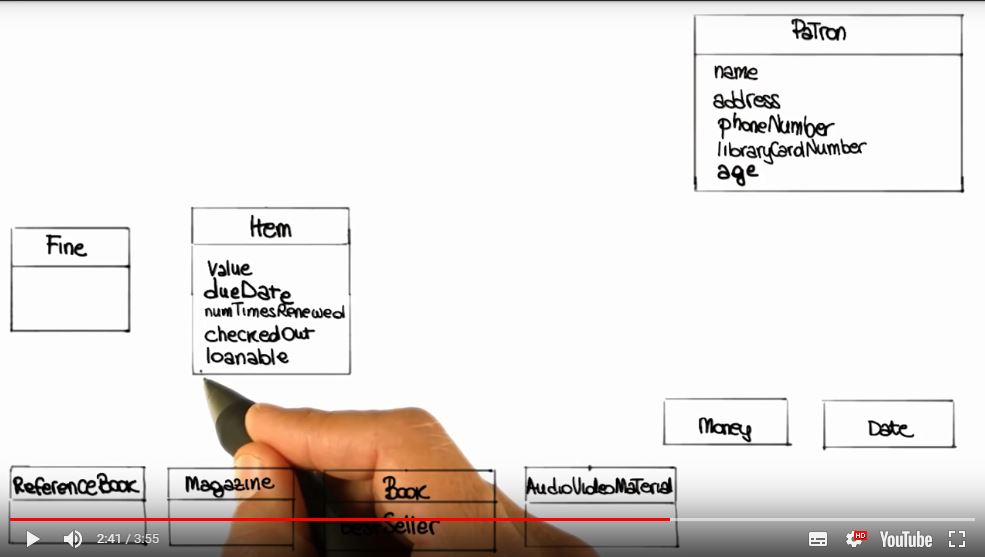 Patron
name
address
phoneNumber
libraryCardNumber
age
Item
Fine
Value
dueDate
numTimesRenewed
checkedOut
loanable
Money
Date
ReferenceBook
Magazine
Book
AudioVideoMaterial
bestSeller
2:41 / 3:55
HD
YouTube